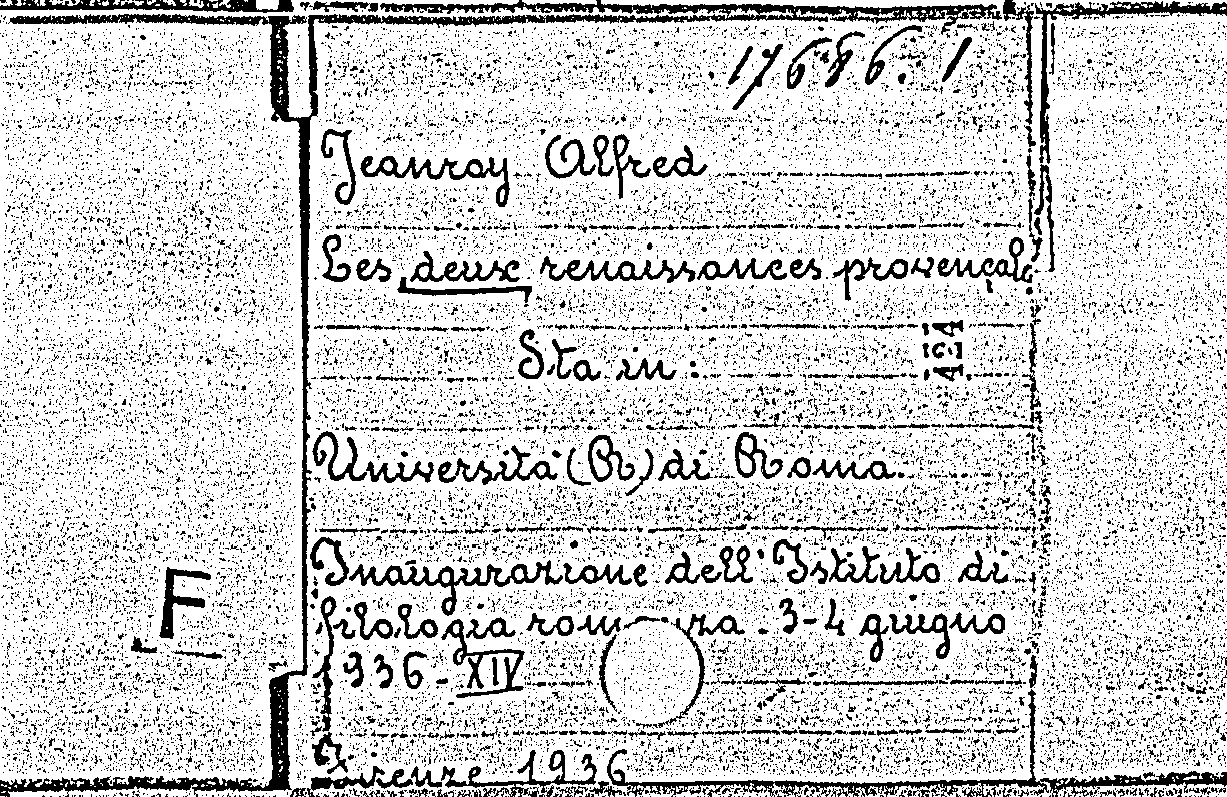 17686.1
Jeanroy Alfred
Les deux renaissances provençale
Sta in:
Università (R) di Roma.
Inaugurazione dell'Istituto di
filologia romanza. 3-4 giugno
1936-XIV
F
Firenze 1936